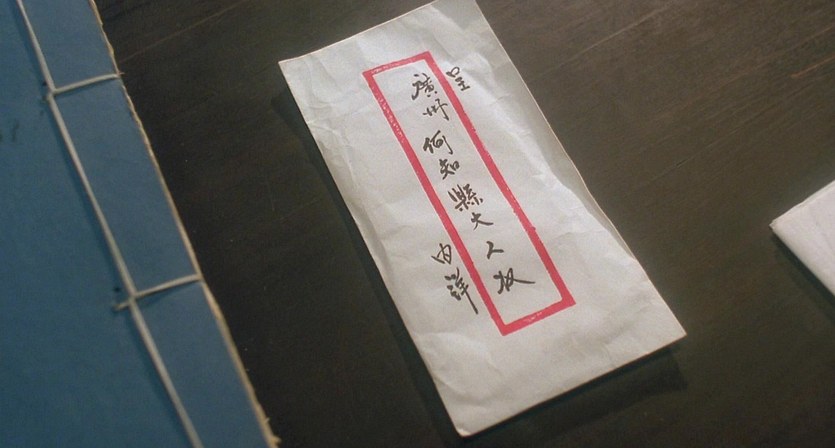 呈
廣州何知縣大人收
內詳